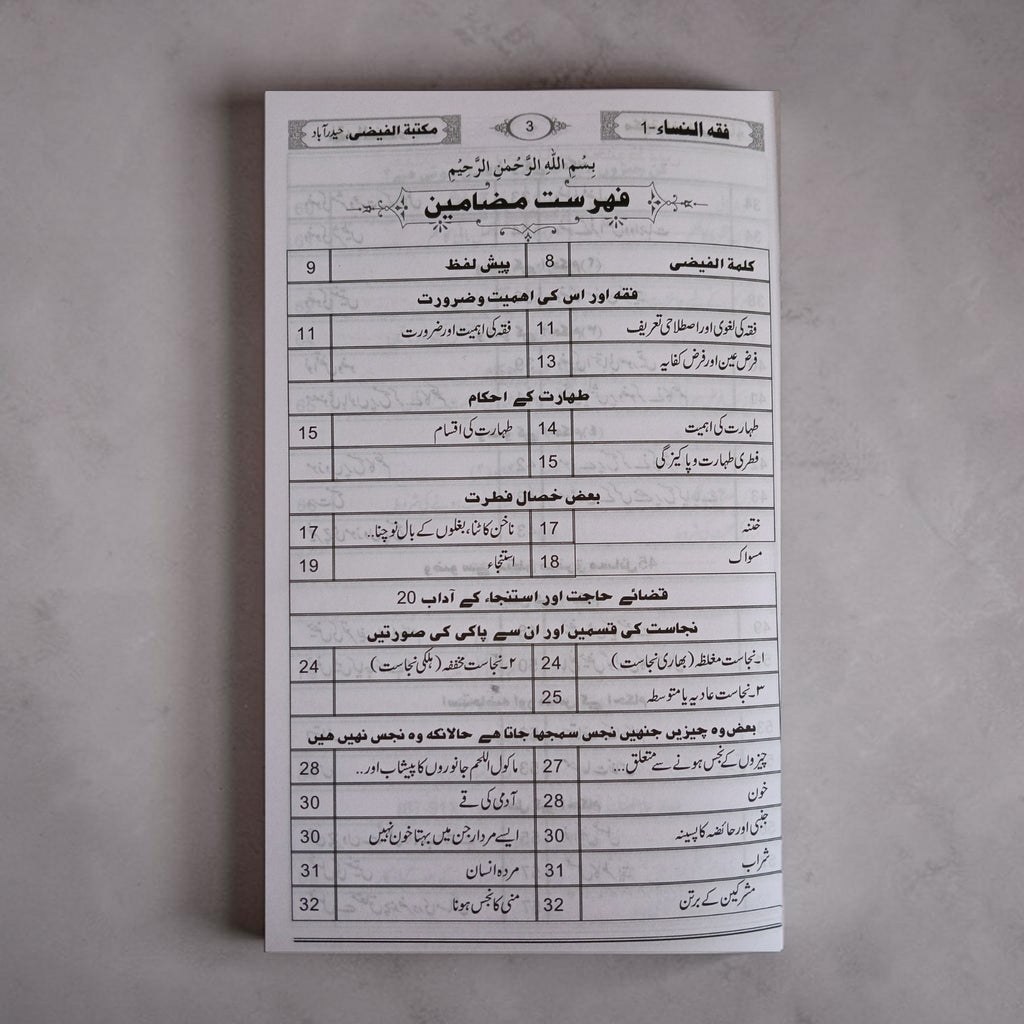 فقه النساء-1 3 مكتبة الفيضى، حيدرآباد
بِسْمِ اللهِ الرَّحْمٰنِ الرَّحِيْمِ
فهرست مضامین
كلمة الفيضى 8 پیش لفظ 9
فقه اور اس کی اهمیت وضرورت
فقہ کی لغوی اور اصطلاحی تعریف 11 فقہ کی اہمیت اور ضرورت 11
فرض عین اور فرض کفایہ 13
طهارت کے احکام
طہارت کی اہمیت 14 طہارت کی اقسام 15
فطری طہارت و پاکیزگی 15
بعض خصال فطرت
ختنہ 17 ناخن کاٹنا، بغلوں کے بال نوچنا.. 17
مسواک 18 استنجاء 19
قضائے حاجت اور استنجاء کے آداب 20
نجاست کی قسمیں اور ان سے پاکی کی صورتیں
۱۔نجاست مغلظہ (بھاری نجاست) 24 ۲۔نجاست مخففہ (ہلکی نجاست) 24
۳۔نجاست عادیہ یا متوسطہ 25
بعض وہ چیزیں جنهیں نجس سمجها جاتا هے حالانکه وہ نجس نهیں هیں
چیزوں کے نجس ہونے سے متعلق... 27 ماکول اللحم جانوروں کا پیشاب اور.. 28
خون 28 آدمی کی قے 30
جنبی اور حائضہ کا پسینہ 30 ایسے مردار جن میں بہتا خون نہیں 30
شراب 31 مردہ انسان 31
مشرکین کے برتن 32 منی کا نجس ہونا 32